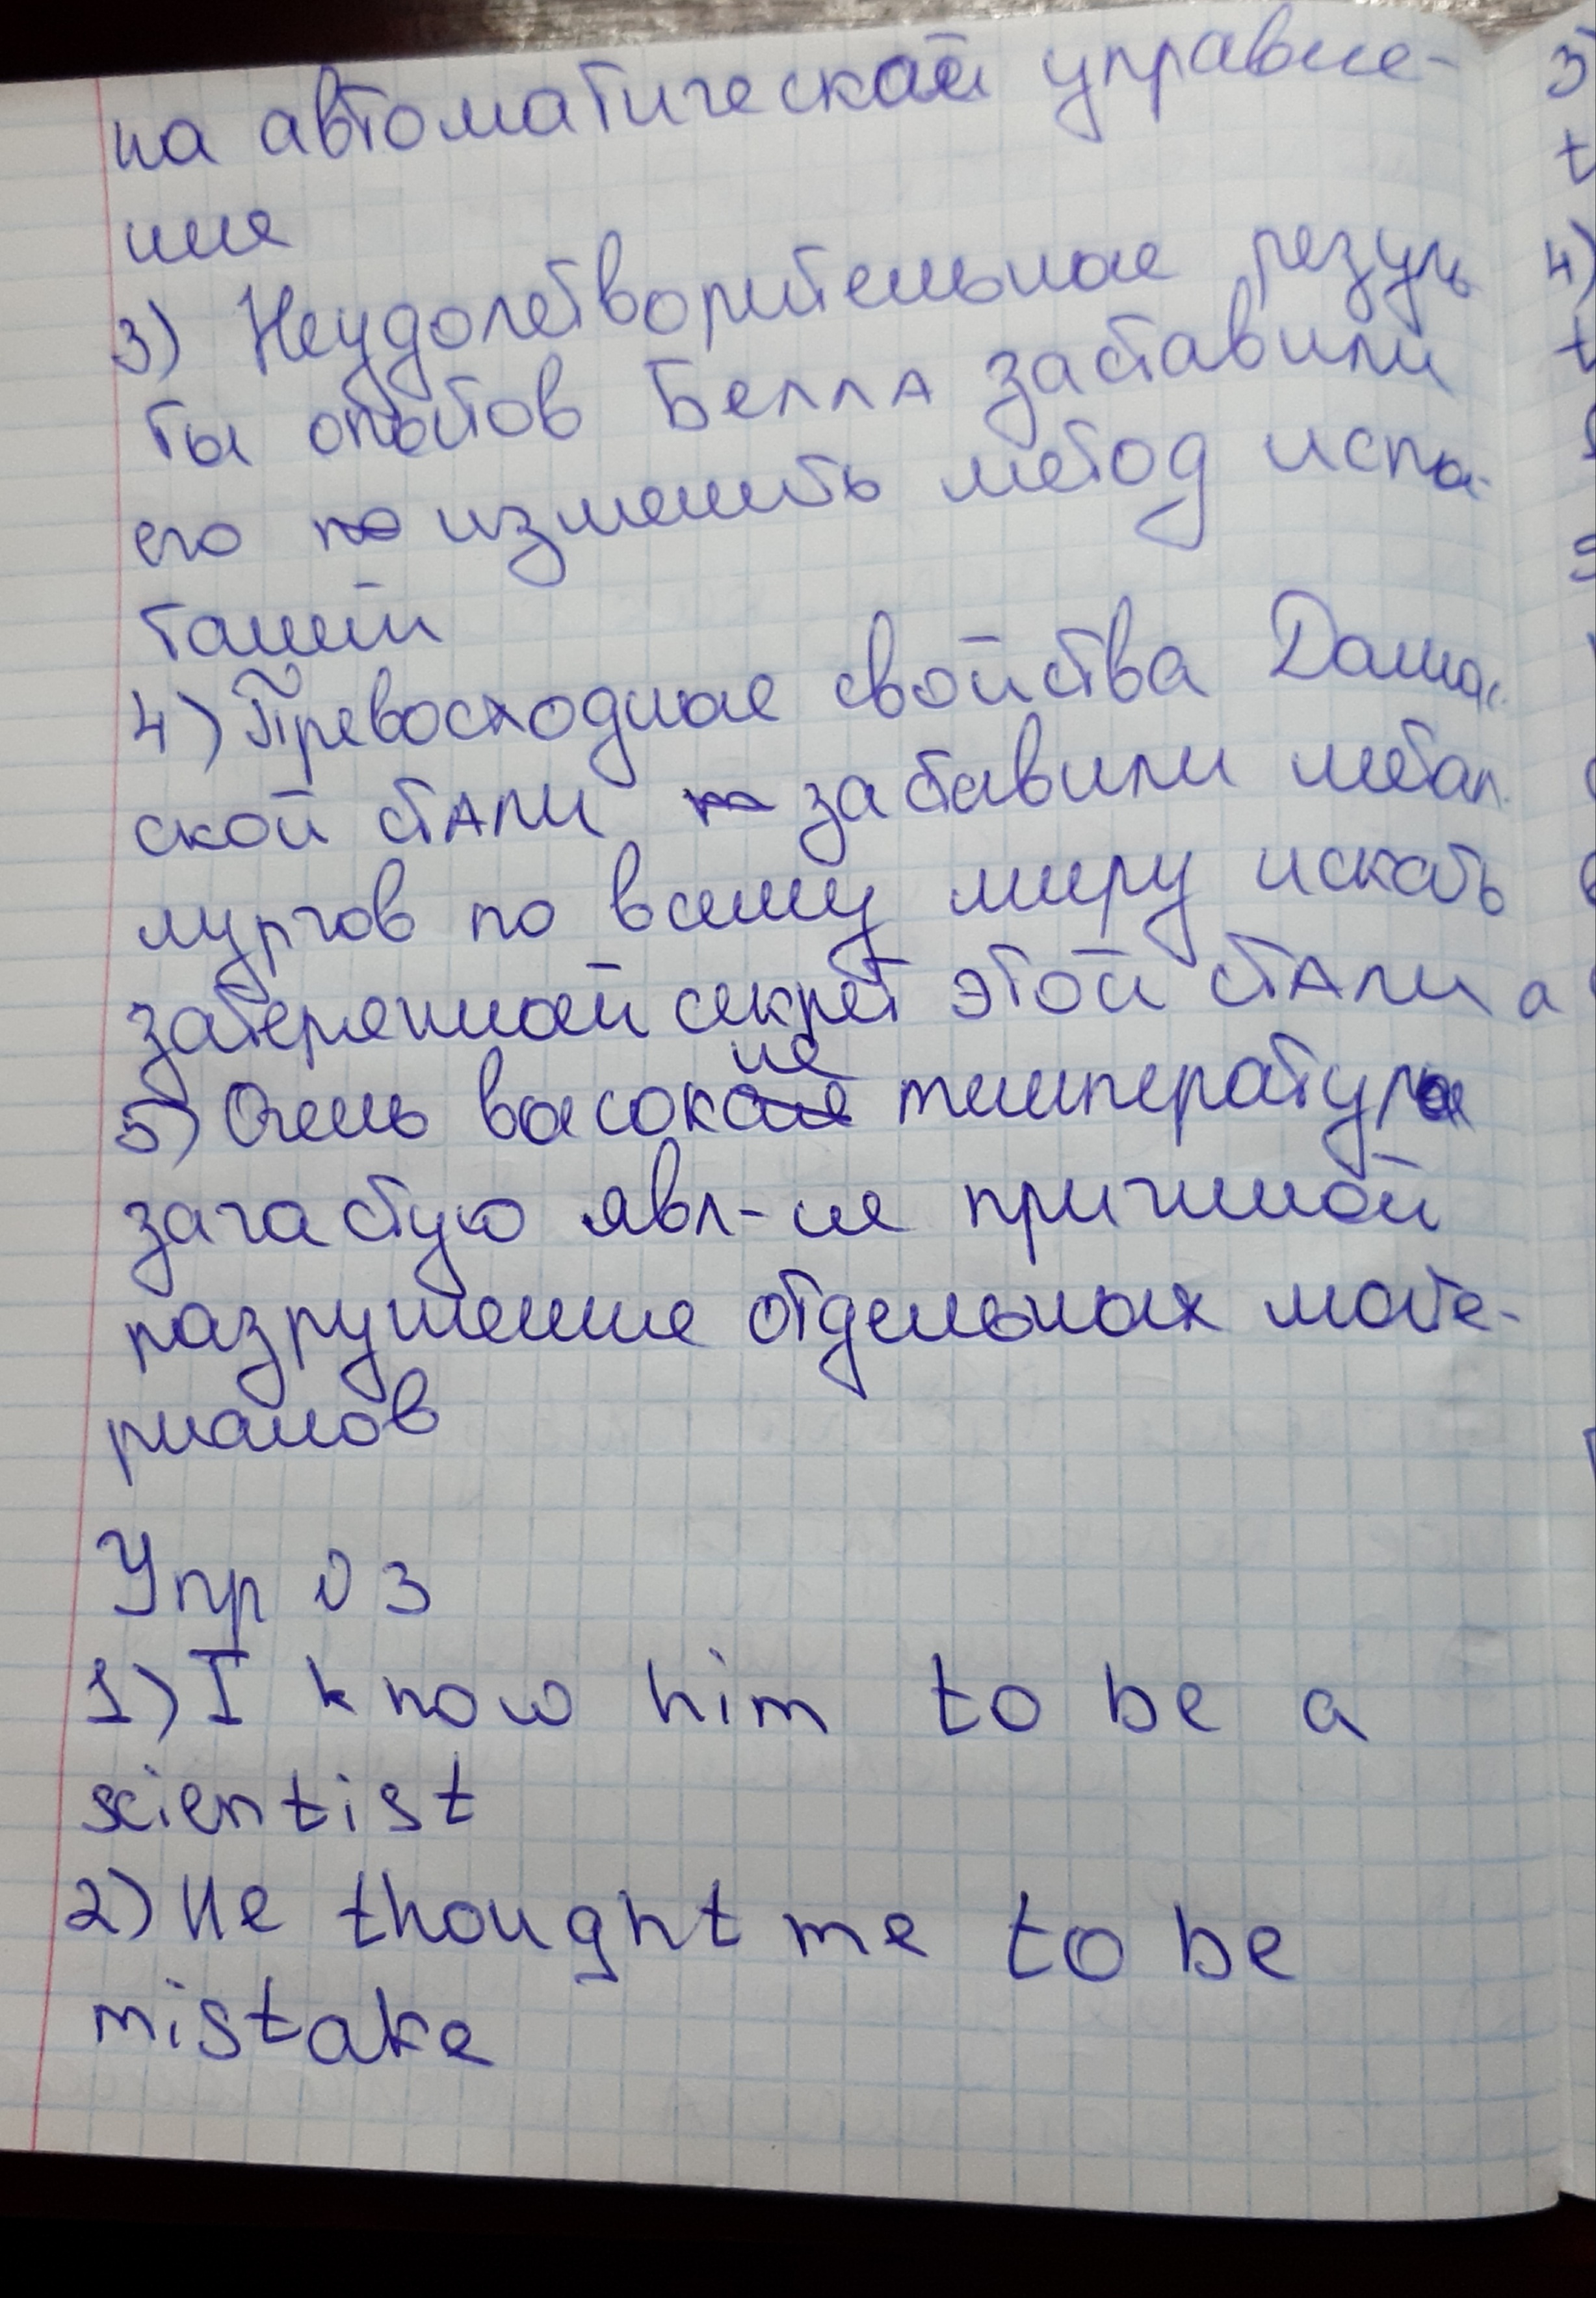 на автоматической управле-
ние
3) Неудолетворительные резуль
ты опытов Белла заставили
его изменить метод испы-
таний
4) Превосходные свойства Дамас
ской стали заставили метал
лургов по всему миру искать
затерянный секрет этой стали а
5) Очень высокие температуры
зачастую явл-ие причиной
разрушение отдельных мате-
риалов
Упр 03
1) I know him to be a
scientist
2) He thought me to be
mistake
3)
t
4)
t